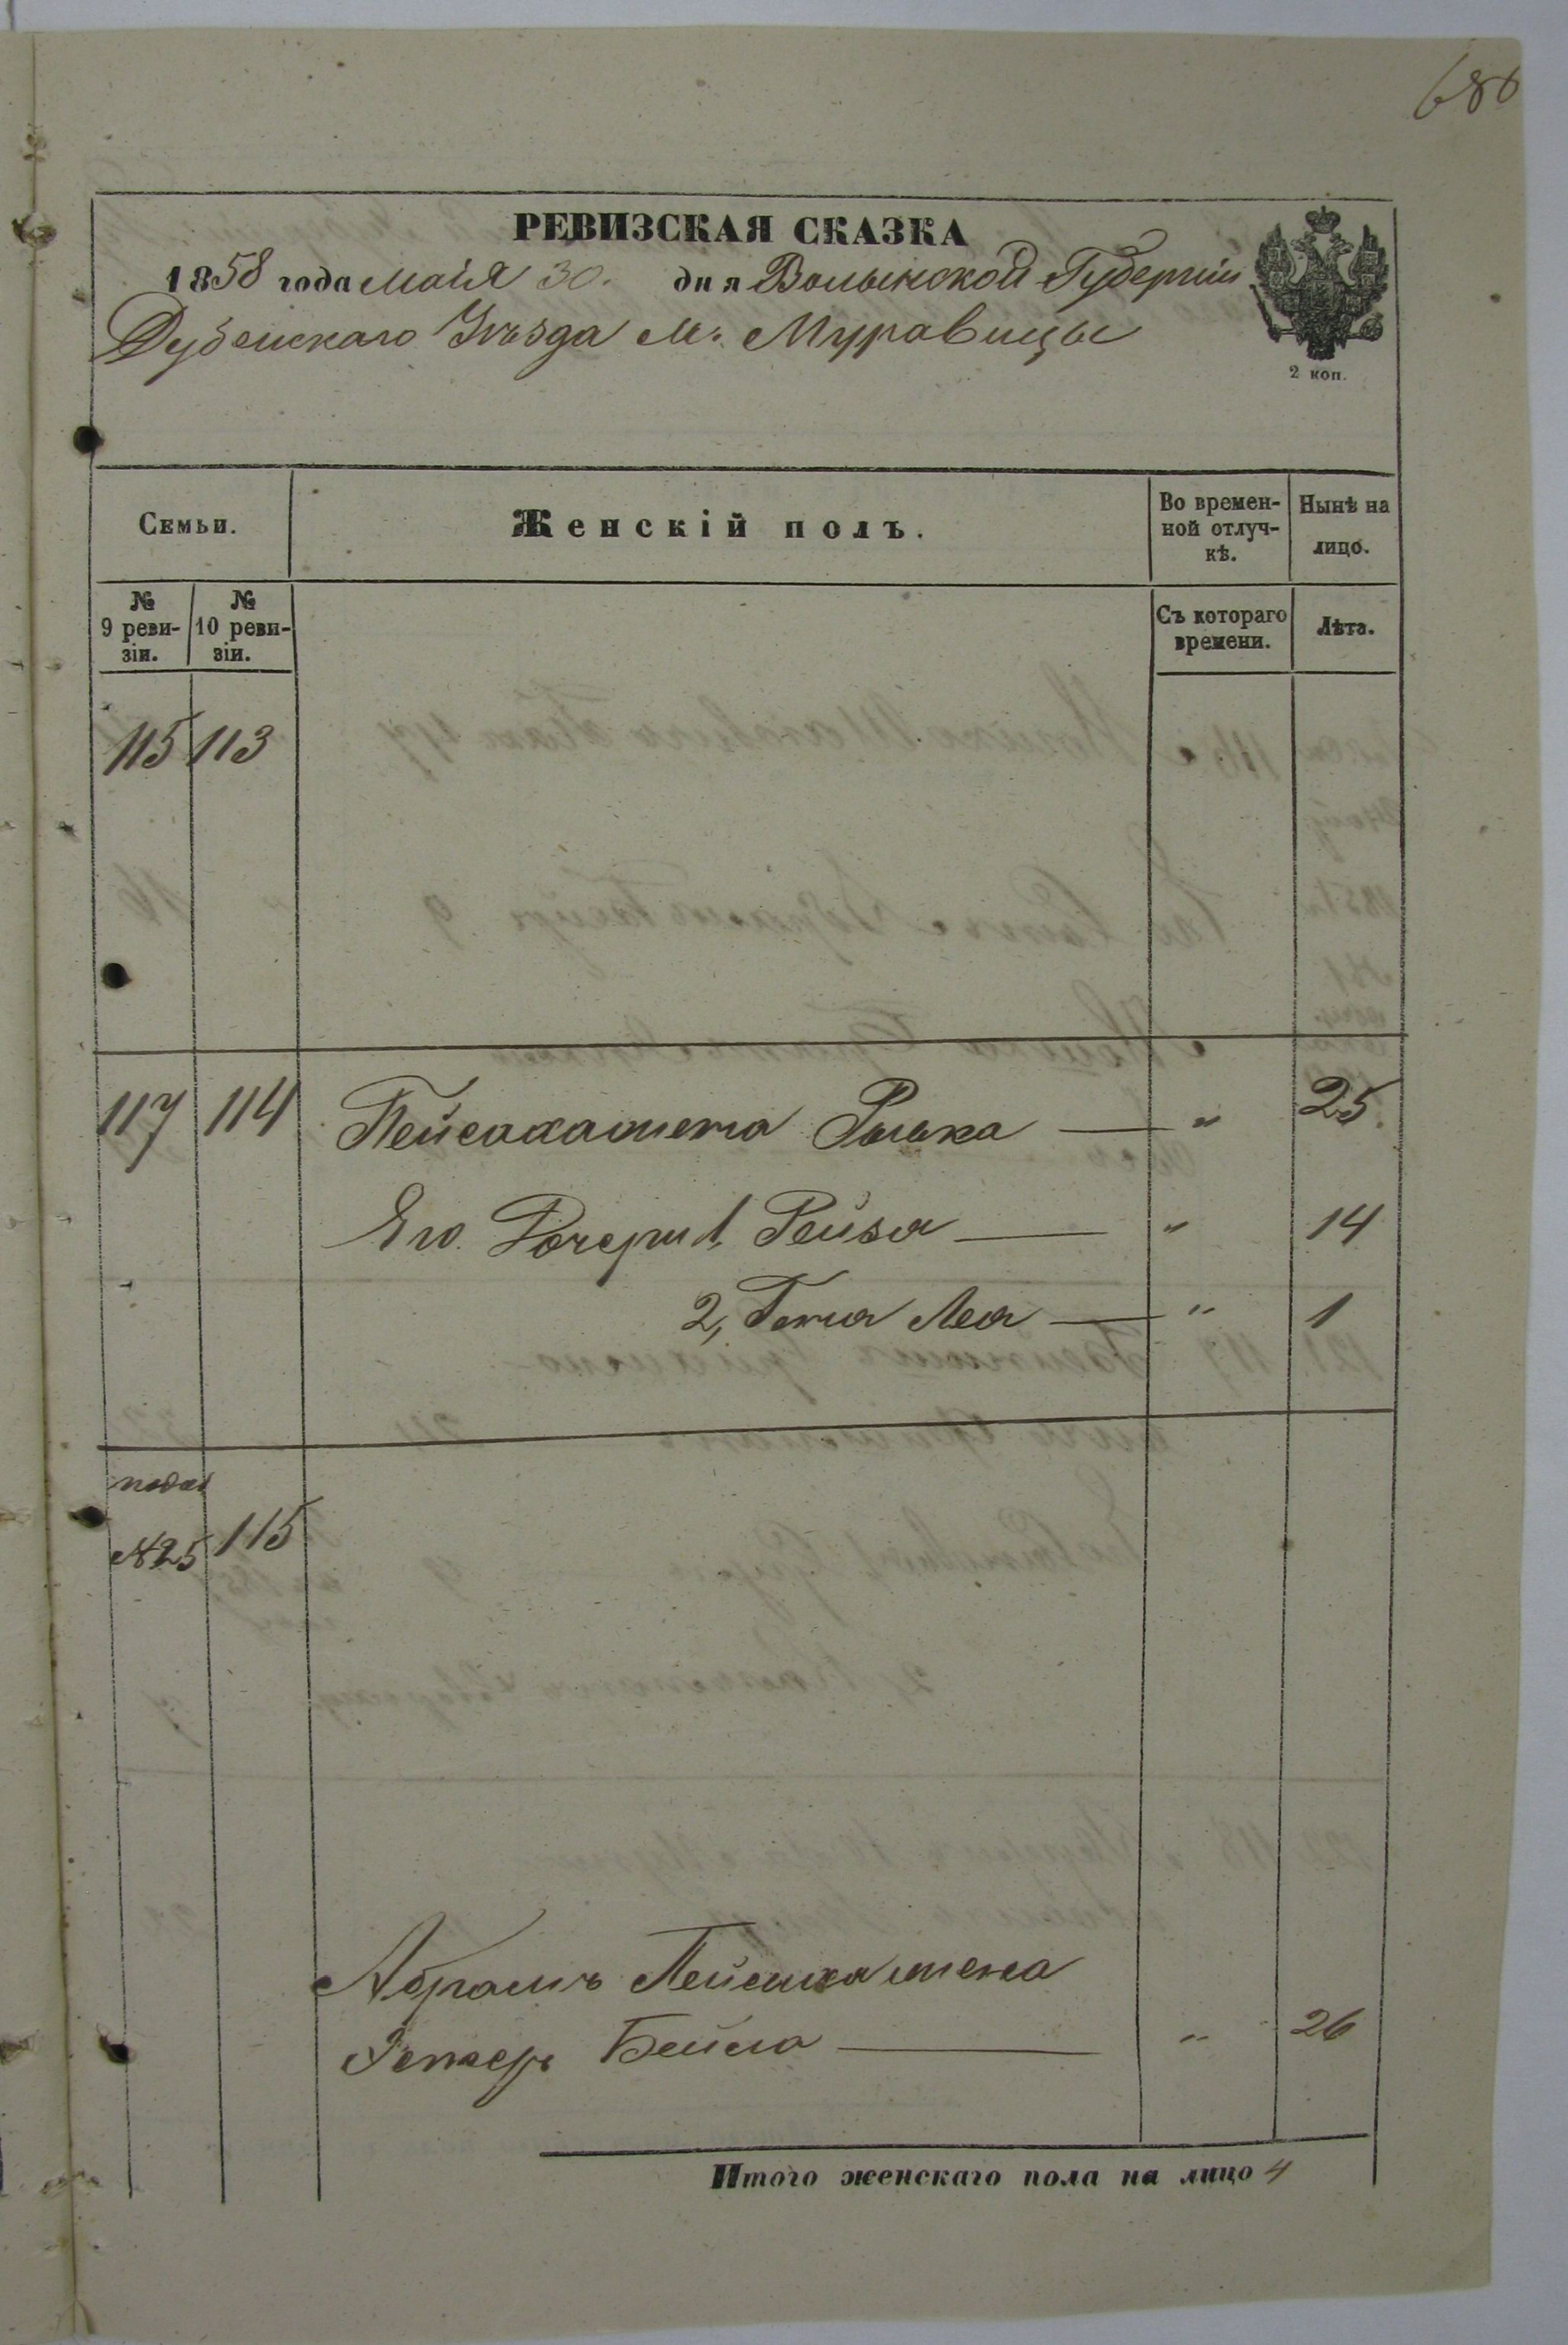 686
РЕВИЗСКАЯ СКАЗКА
1858 года Мая 30. дня Волынской Губерніи
Дубенскаго Уѣзда М. Муравицы
2 коп.
Семьи.
Женскій полъ.
Во времен-
ной отлуч-
кѣ.
Нынѣ на
лицо.
№
9 реви-
зіи.
№
10 реви-
зіи.
Съ котораго
времени.
Лѣта.
115 113
117 114 Пейсаха жена Рыька — " 25
Его Дочери 1, Рейза — " 14
2, Геня Леа — " 1
подъ
№25 115
Абрамъ Пейсаха жена
Эстеръ Бейла — " 26
Итого женскаго пола на лицо 4